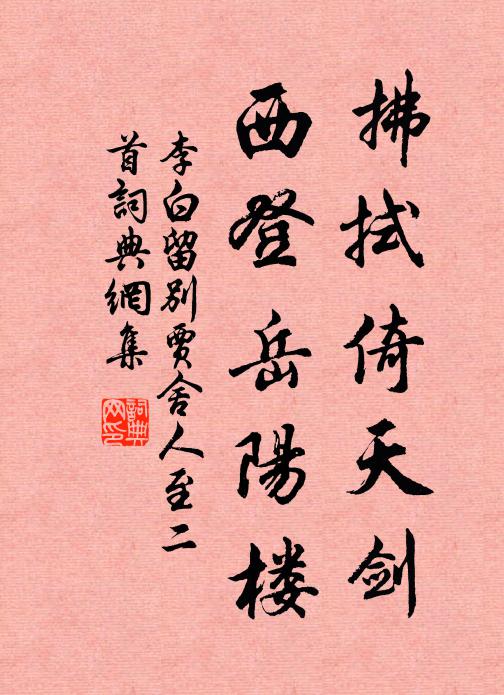 拂拭倚天剑
西登岳陽楼
李白留别贾舍人至二
首詞典網集
詞典
网印